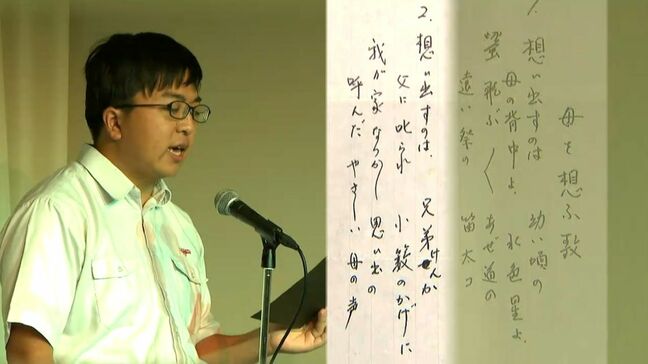 母を想ふ歌
1. 想い出すのは 幼い頃の
母の背中よ、 水色星よ、
蛍飛ぶ〱 あぜ道の
遠い祭の 笛太コ
2. 想い出すのは、 兄弟けんか
父に叱られ 小薮のかげに
我が家なつかし 思い出の
呼んだ やさしい 母の声